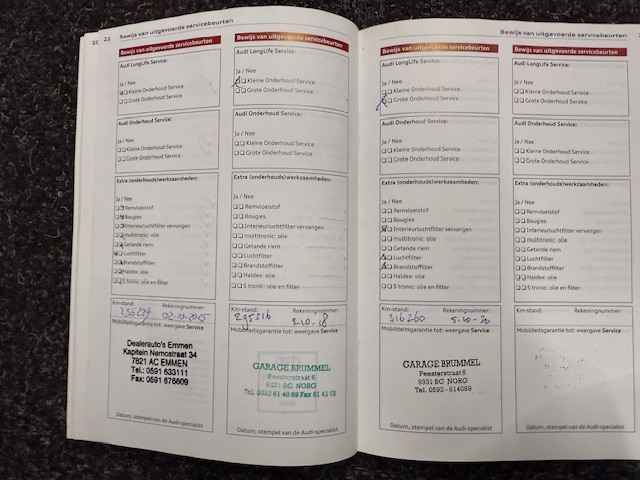 21 22 Bewijs van uitgevoerde servicebeurten
Bewijs van uitgevoerde servicebeurten
Audi LongLife Service:
Ja / Nee
Kleine Onderhoud Service
Grote Onderhoud Service
Audi Onderhoud Service:
Ja / Nee
Kleine Onderhoud Service
Grote Onderhoud Service
Extra (onderhouds)werkzaamheden:
Ja / Nee
Remvloeistof
Bougies
Interieurluchtfilter vervangen
multitronic: olie
Getande riem
Luchtfilter
Brandstoffilter
Haldex: olie
S tronic: olie en filter
Km-stand:
Rekeningnummer:
Mobiliteitsgarantie tot: weergave Service
Dealerauto's Emmen
Kapitein Nemostraat 34
7821 AC EMMEN
Tel.: 0591 633111
Fax: 0591 676609
Datum, stempel van de Audi-specialist
Bewijs van uitgevoerde servicebeurten
Audi LongLife Service:
Ja / Nee
Kleine Onderhoud Service
Grote Onderhoud Service
Audi Onderhoud Service:
Ja / Nee
Kleine Onderhoud Service
Grote Onderhoud Service
Extra (onderhouds)werkzaamheden:
Ja / Nee
Remvloeistof
Bougies
Interieurluchtfilter vervangen
multitronic: olie
Getande riem
Luchtfilter
Brandstoffilter
Haldex: olie
S tronic: olie en filter
Km-stand:
Rekeningnummer:
2-10-18
Mobiliteitsgarantie tot: weergave Service
GARAGE BRUMMEL
Peesterstraat 6
9331 BC NORG
Datum, stempel van de Audi-specialist
Bewijs van uitgevoerde servicebeurten
Bewijs van uitgevoerde servicebeurten
Audi LongLife Service:
Ja / Nee
Kleine Onderhoud Service
Grote Onderhoud Service
Audi Onderhoud Service:
Ja / Nee
Kleine Onderhoud Service
Grote Onderhoud Service
Extra (onderhouds)werkzaamheden:
Ja / Nee
Remvloeistof
Bougies
Interieurluchtfilter vervangen
multitronic: olie
Getande riem
Luchtfilter
Brandstoffilter
Haldex: olie
S tronic: olie en filter
Km-stand:
Rekeningnummer:
316260 5-10-20
Mobiliteitsgarantie tot: weergave Service
GARAGE BRUMMEL
Peesterstraat 6
9331 BC NORG
Tel. 0592-614089
Datum, stempel van de Audi-specialist
Bewijs van uitgevoerde servicebeurten
Audi LongLife Service:
Ja / Nee
Kleine Onderhoud Service
Grote Onderhoud Service
Audi Onderhoud Service:
Ja / Nee
Kleine Onderhoud Service
Grote Onderhoud Service
Extra (onderhouds)werkzaamheden:
Ja / Nee
Remvloeistof
Bougies
Interieurluchtfilter vervangen
multitronic: olie
Getande riem
Luchtfilter
Brandstoffilter
Haldex: olie
S tronic: olie en filter
Km-stand:
Rekeningnummer:
Mobiliteitsgarantie tot: weergave Service
Datum, stempel van de Audi-specialist